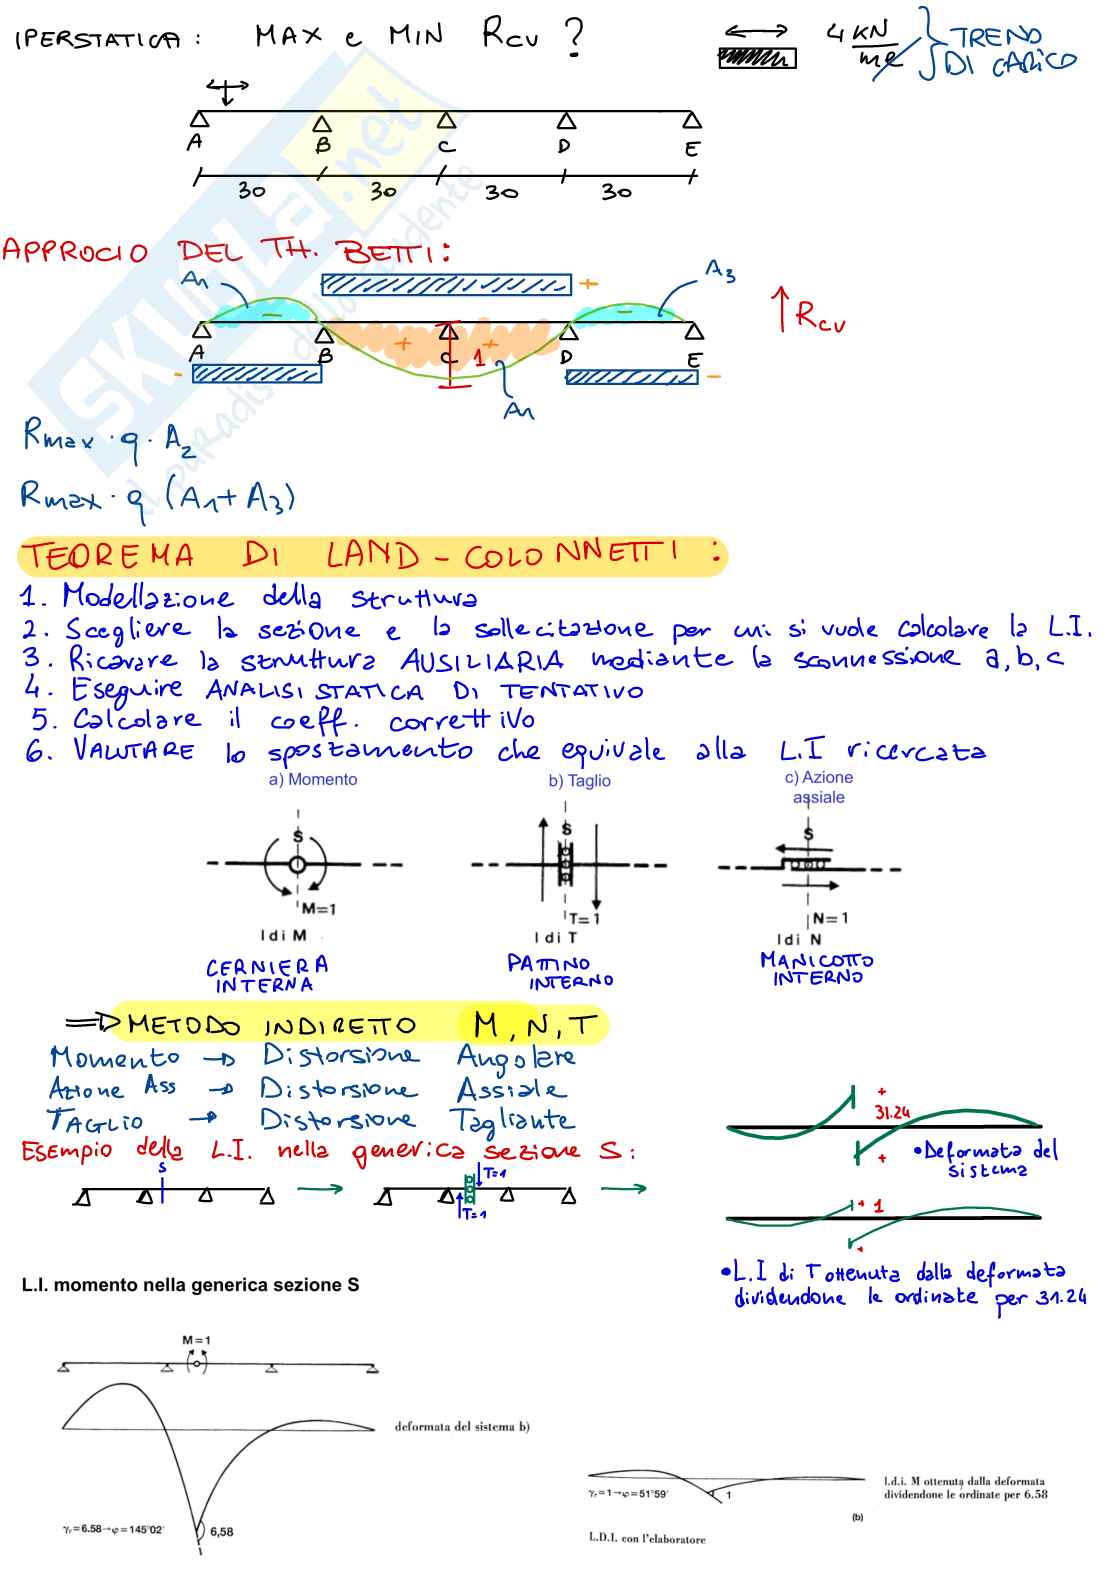 IPERSTATICA: MAX e MIN RCV ?
4 KN/ml TRENO
DI CARICO
A B C D E
30 30 30 30
APPROCIO DEL TH. BETTI:
A1 A3
+
- -
+ +
A B C 1 D E
RCV
- -
A1
Rmax · q · A2
Rmax · q (A1 + A3)
TEOREMA DI LAND - COLONNETTI :
1. Modellazione della struttura
2. Scegliere la sezione e la sollecitazione per cui si vuole calcolare la L.I.
3. Ricavare la struttura AUSILIARIA mediante la sconnessione a, b, c
4. Eseguire ANALISI STATICA DI TENTATIVO
5. Calcolare il coeff. correttivo
6. VALUTARE lo spostamento che equivale alla L.I ricercata
a) Momento b) Taglio c) Azione
assiale
S S S
M=1 T=1 N=1
I di M I di T I di N
CERNIERA
INTERNA
PATTINO
INTERNO
MANICOTTO
INTERNO
=> METODO INDIRETTO M, N, T
Momento → Distorsione Angolare
Azione Ass → Distorsione Assiale
TAGLIO → Distorsione Tagliante
Esempio della L.I. nella generica sezione S:
S T=1
T=1
+
31.24
+
• Deformata del
sistema
+ 1
+
• L.I di T ottenuta dalla deformata
dividendone le ordinate per 31.24
L.I. momento nella generica sezione S
M=1
deformata del sistema b)
γr=6.58→φ=145°02' 6,58
γr=1→φ=51°59' 1
l.d.i. M ottenuta dalla deformata
dividendone le ordinate per 6.58
(b)
L.D.I. con l'elaboratore
SKUOLA.net
il paradiso dello studente